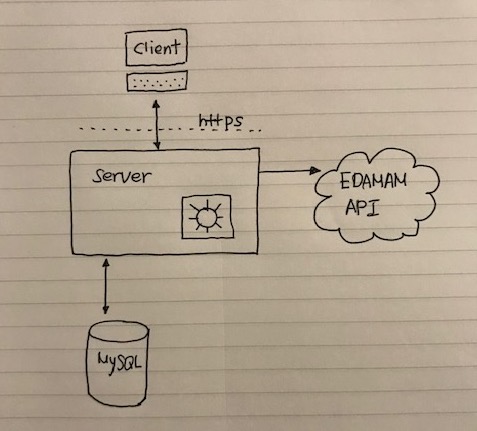 client
https
Server
EDAMAM
API
MySQL